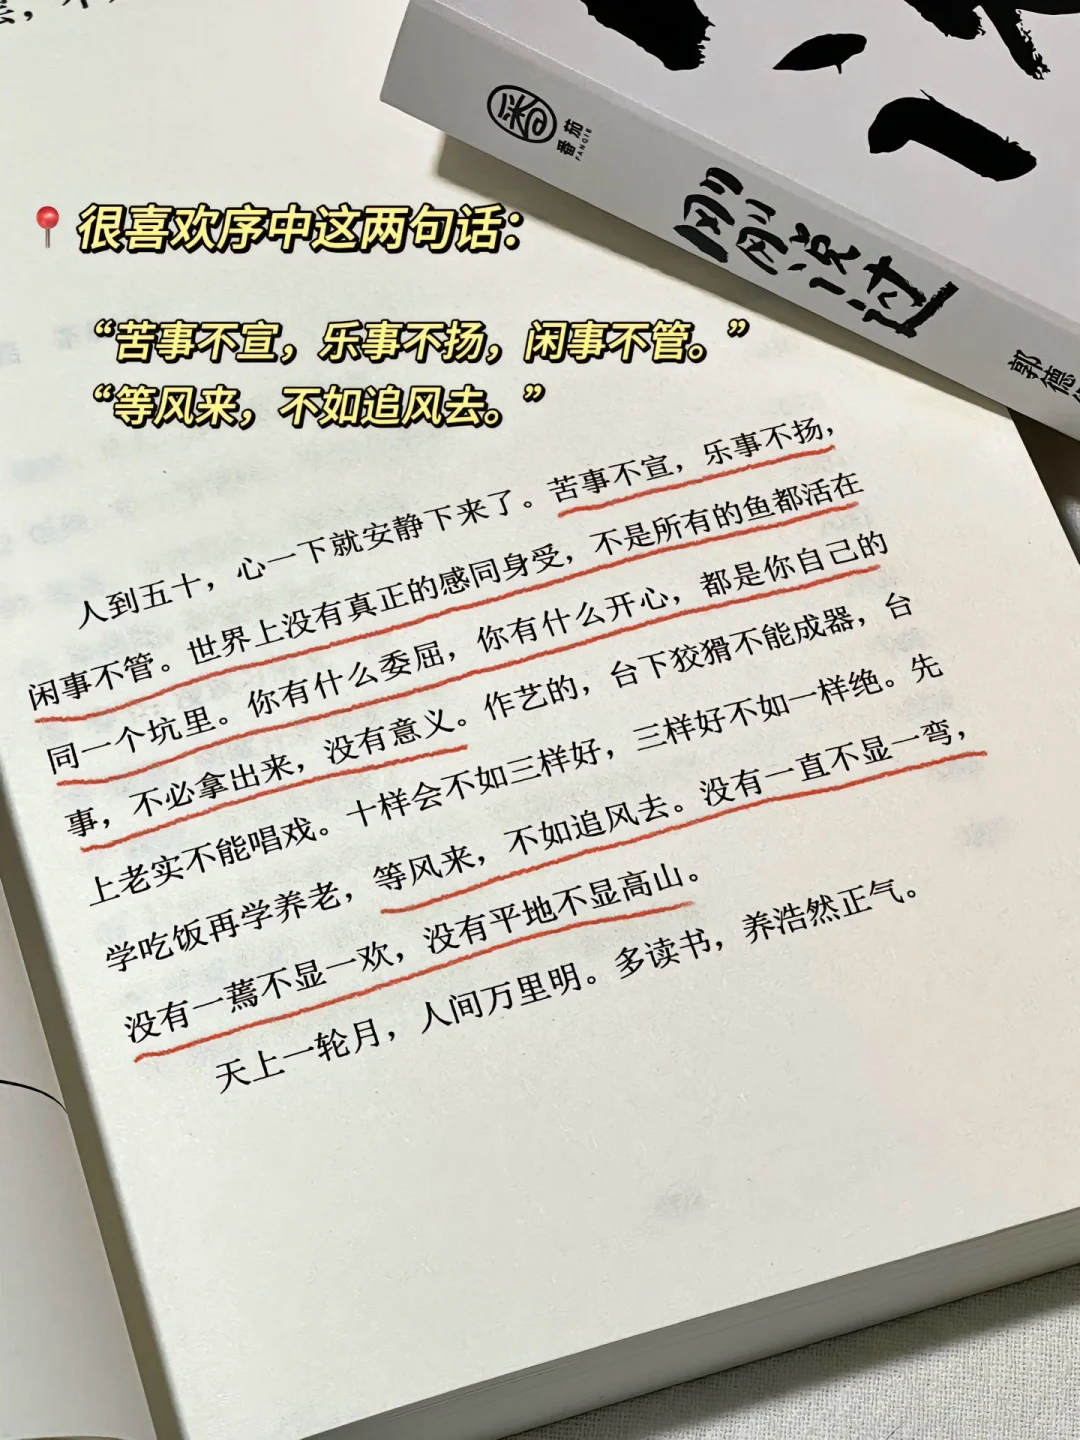 番茄
FANQIE
刚刚说过
郭德
很喜欢序中这两句话：
“苦事不宣，乐事不扬，闲事不管。”
“等风来，不如追风去。”
人到五十，心一下就安静下来了。苦事不宣，乐事不扬，
闲事不管。世界上没有真正的感同身受，不是所有的鱼都活在
同一个坑里。你有什么委屈，你有什么开心，都是你自己的
事，不必拿出来，没有意义。作艺的，台下狡猾不能成器，台
上老实不能唱戏。十样会不如三样好，三样好不如一样绝。先
学吃饭再学养老，等风来，不如追风去。没有一直不显一弯，
没有一蔫不显一欢，没有平地不显高山。
天上一轮月，人间万里明。多读书，养浩然正气。